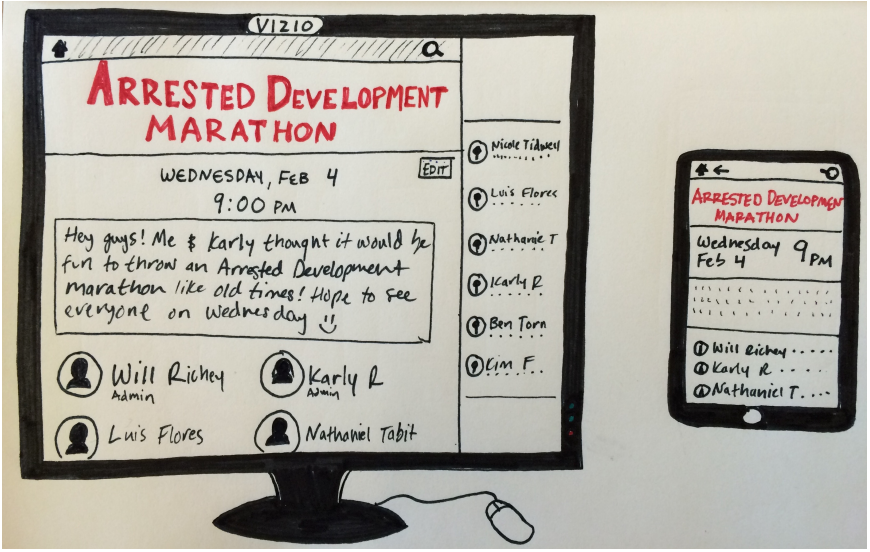 VIZIO
ARRESTED DEVELOPMENT
MARATHON
EDIT
WEDNESDAY, FEB 4
9:00 PM
Hey guys! Me & Karly thought it would be
fun to throw an Arrested Development
marathon like old times! Hope to see
everyone on Wednesday
Will Richey
Admin
Karly R
Admin
Luis Flores
Nathaniel Tabit
Nicole Tidwell
Luis Flores
Nathanie T
Karly R
Ben Torn
Kim F.
ARRESTED DEVELOPMENT
MARATHON
Wednesday
Feb 4
9 PM
Will Richey
Karly R
Nathaniel T.